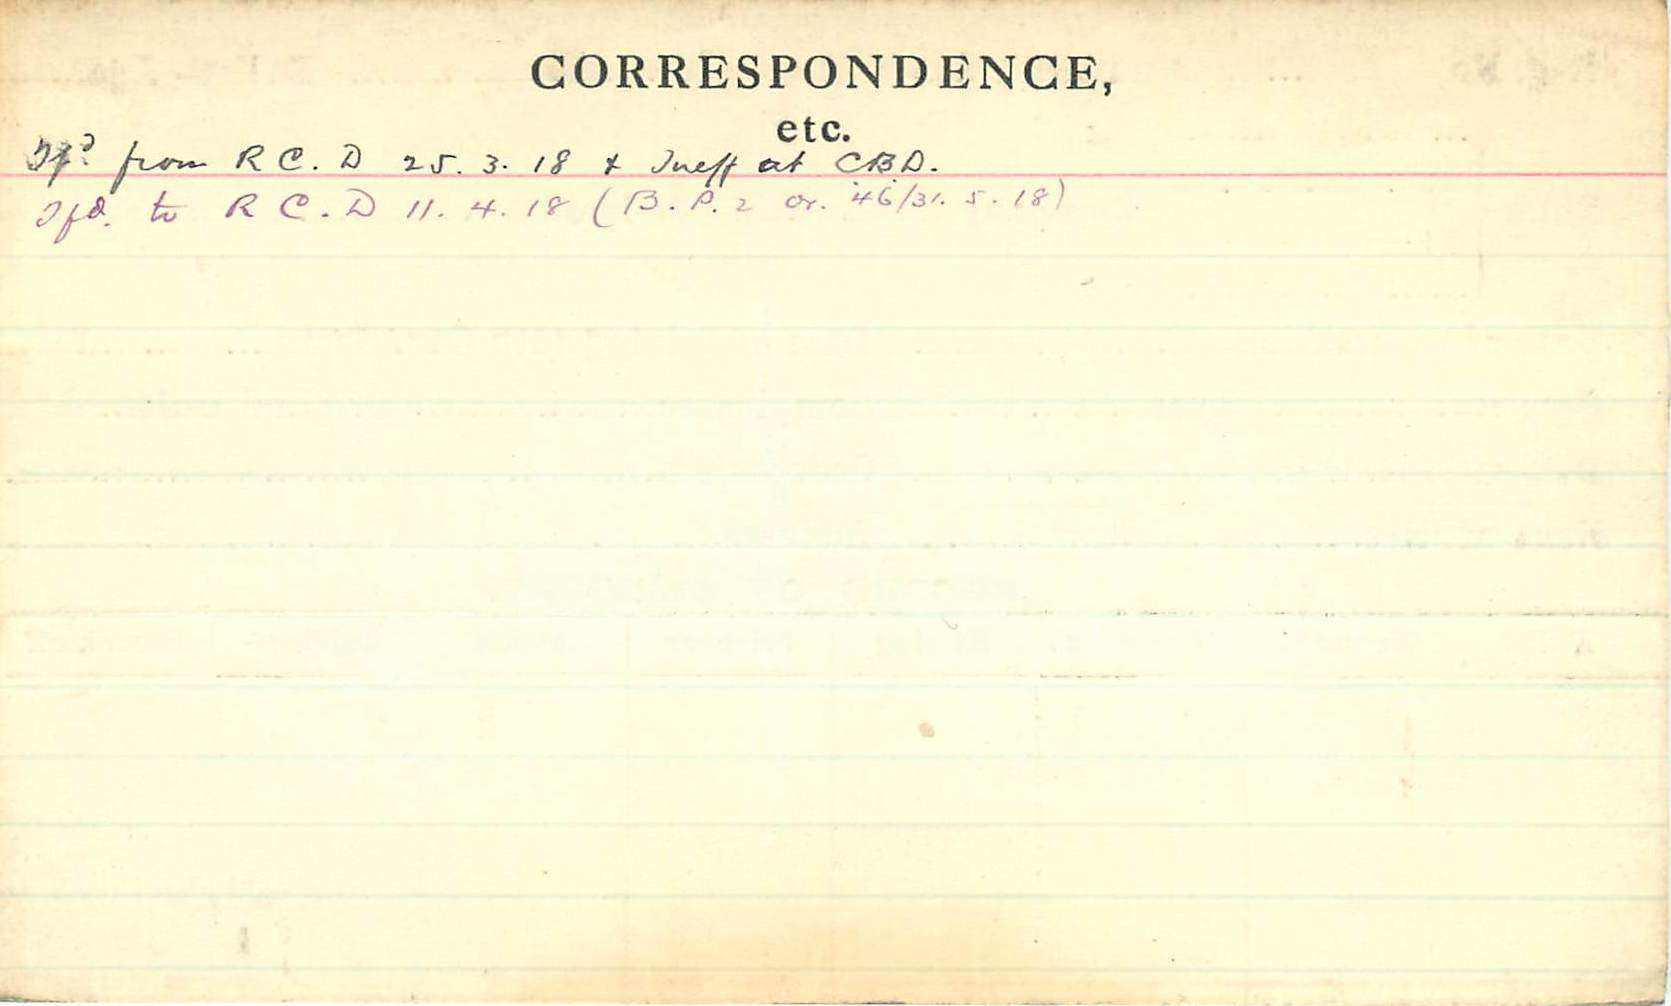 CORRESPONDENCE,
etc.
Tfd from R C. D 25. 3. 18 & Ineff at CBD.
Tfd. to R C. D 11. 4. 18 (B. P. 2 Or. 46/31. 5. 18)